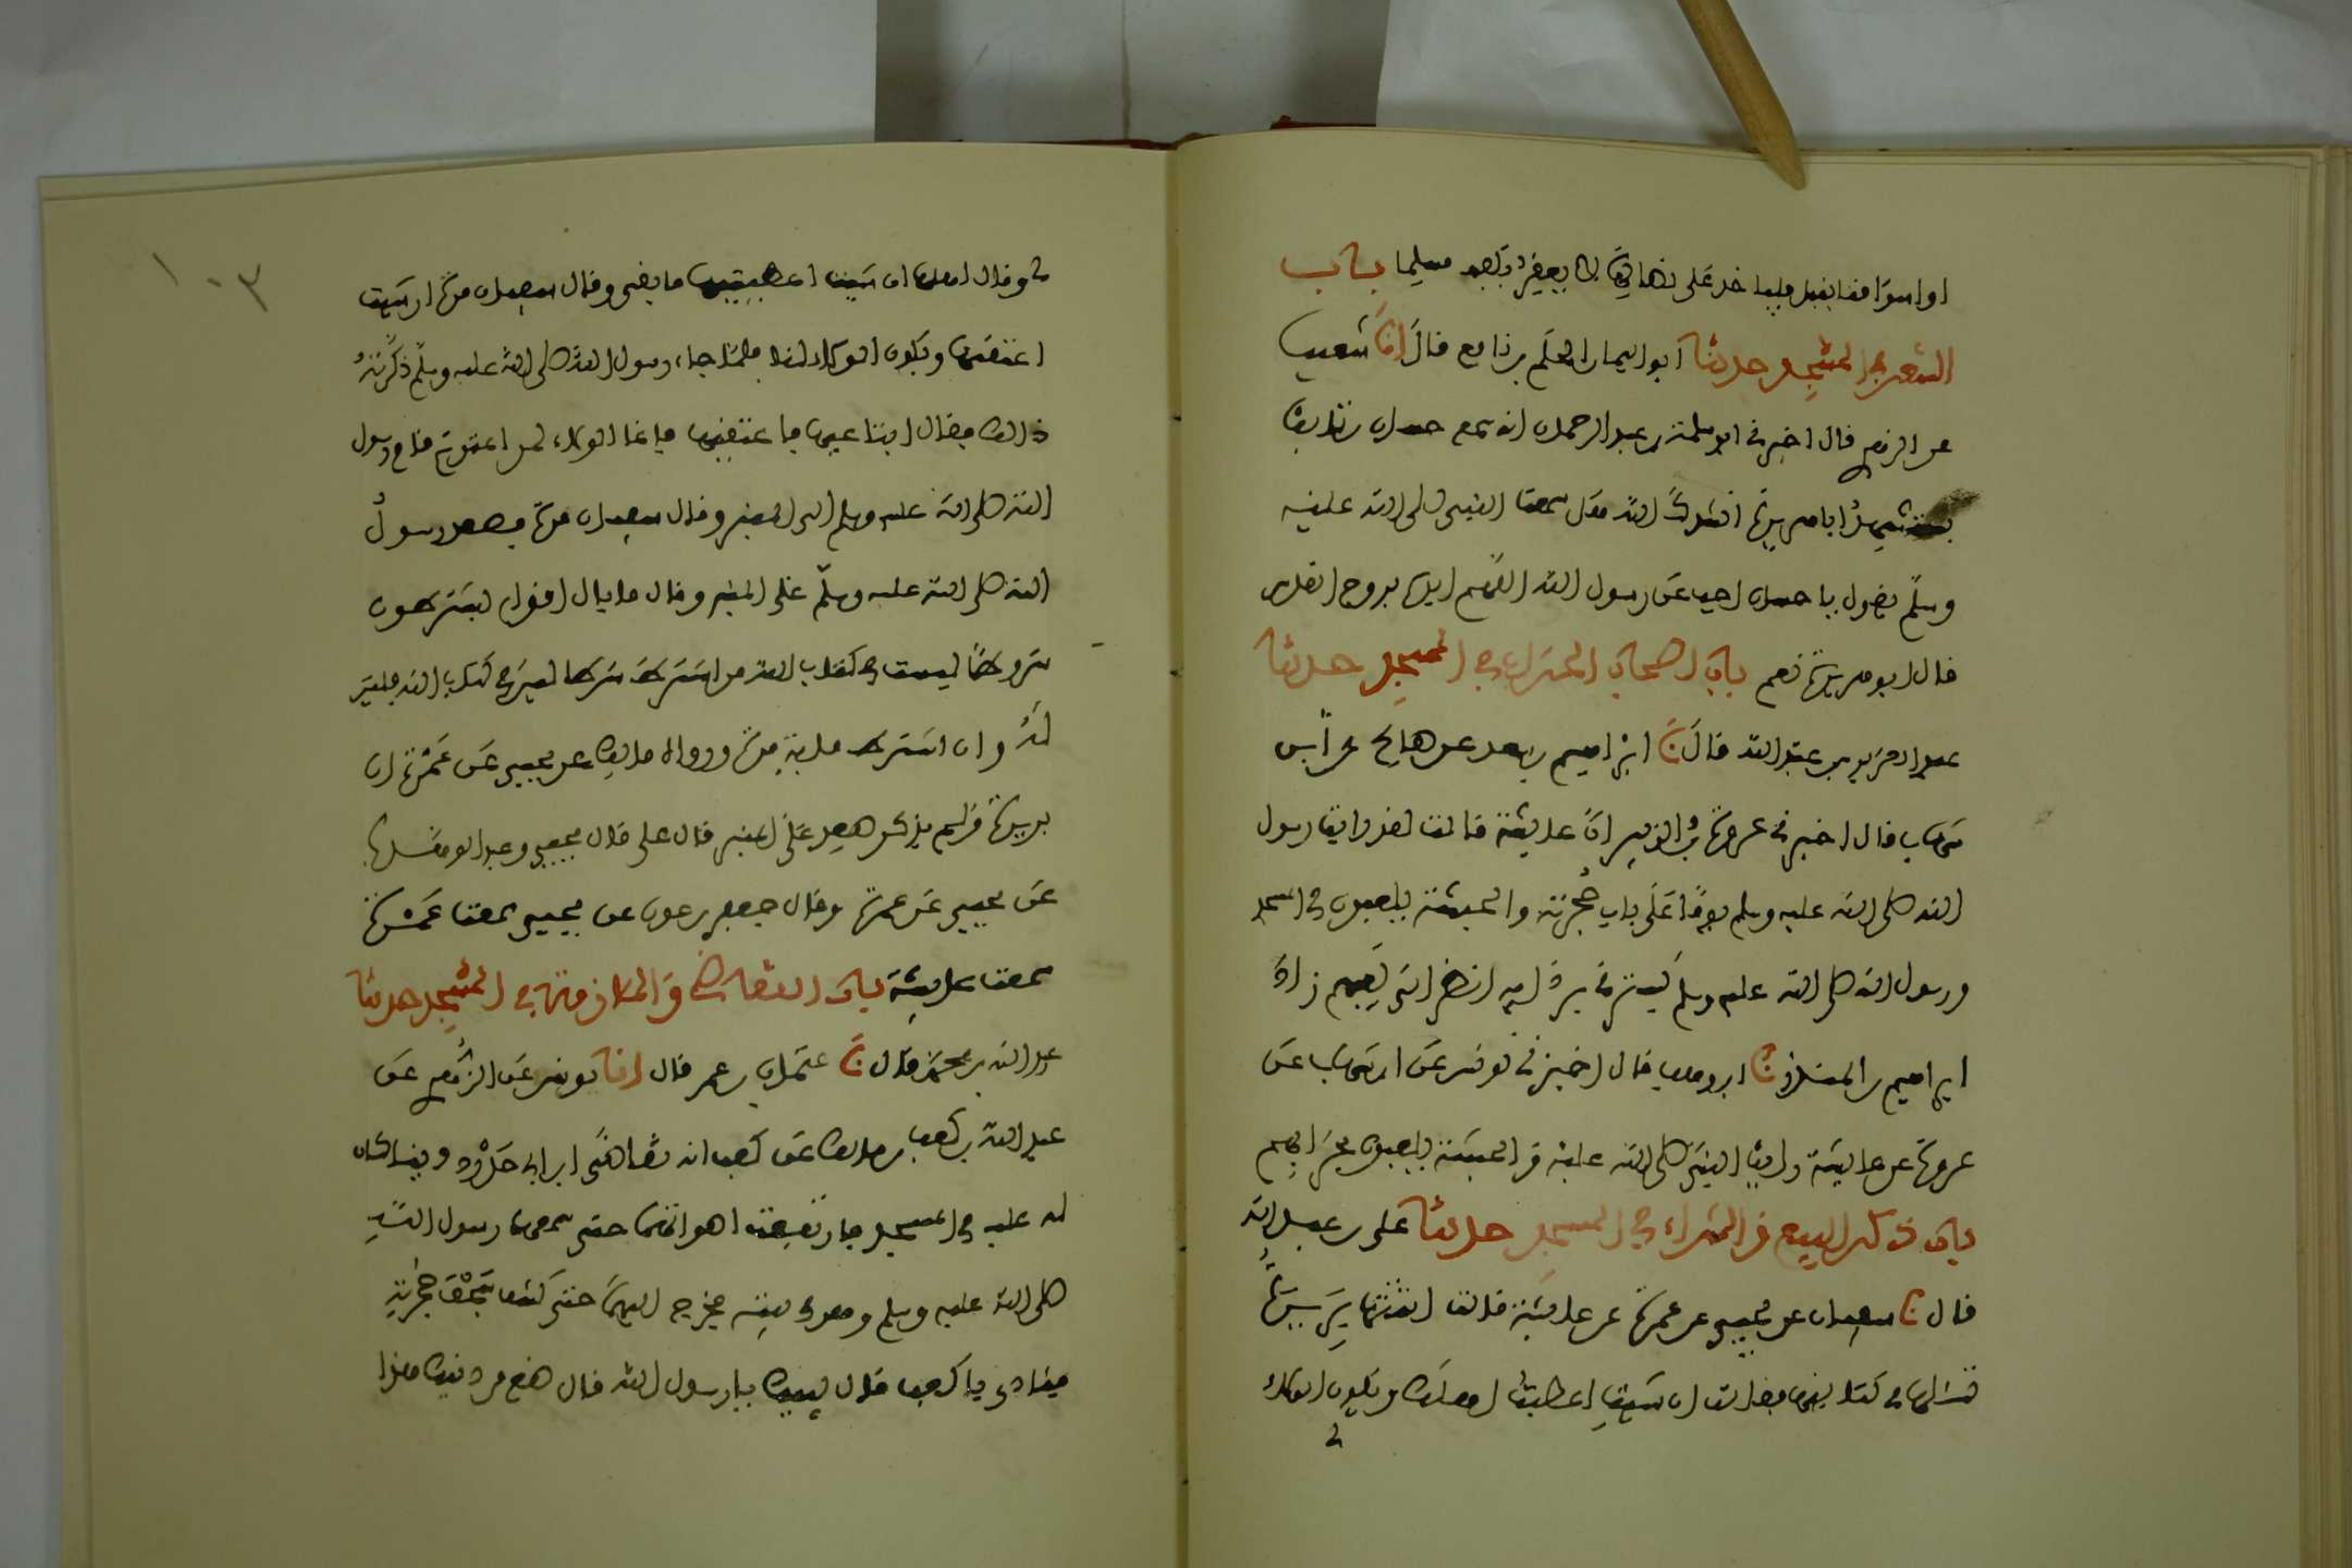 او اسواقنا بنبل فلياخذ على نصالها لا يعقر بكفه مسلما باب
الشعر في المسجد حدثنا ابو اليمان الحكم بن نافع قال انا شعيب
عن الزهري قال اخبرني ابو سلمة بن عبد الرحمن انه سمع حسان بن ثابت
يستشهد ابا هريرة انشدك الله هل سمعت النبي صلى الله عليه
وسلم يقول يا حسان اجب عن رسول الله اللهم ايده بروح القدس
قال ابو هريرة نعم باب اصحاب الحراب في المسجد حدثنا
عبد العزيز بن عبد الله قال نا ابراهيم بن سعد عن صالح عن ابن
شهاب قال اخبرني عروة بن الزبير ان عايشة قالت لقد رايت رسول
الله صلى الله عليه وسلم يوما على باب حجرتي والحبشة يلعبون في المسجد
ورسول الله صلى الله عليه وسلم يسترني بردايه انظر الى لعبهم زاد
ابراهيم بن المنذر نا ابن وهب قال اخبرني يونس عن ابن شهاب عن
عروة عن عايشة رايت النبي صلى الله عليه والحبشة يلعبون بحرابهم
باب ذكر البيع والشراء في المسجد حدثنا علي بن عبد الله
قال نا سفيان عن يحيى عن عمرة عن عايشة قالت اتتها بريرة
تسالها في كتابتها فقالت ان شيت اعطيت اهلك ويكون الولاء
لي وقال اهلها ان شيت اعطيتها ما بقي وقال سفيان مرة ان شيت
اعتقتها ويكون الولاء لنا فلما جاء رسول الله صلى الله عليه وسلم ذكرته
ذلك فقال ابتاعيها فاعتقيها فانما الولاء لمن اعتق ثم قام رسول
الله صلى الله عليه وسلم على المنبر وقال سفيان مرة فصعد رسول
الله صلى الله عليه وسلم على المنبر وقال ما بال اقوام يشترطون
شروطا ليست في كتاب الله من اشترط شرطا ليس في كتاب الله فليس
له وان اشترط ماية مرة ورواه مالك عن يحيى عن عمرة ان
بريرة ولم يذكر صعد على المنبر قال علي قال يحيى وعبد الوهاب
عن يحيى عن عمرة وقال جعفر بن عون عن يحيى سمعت عمرة
سمعت عايشة باب التقاضي والملازمة في المسجد حدثنا
عبد الله بن محمد قال نا عثمان بن عمر قال انا يونس عن الزهري عن
عبد الله بن كعب بن مالك عن كعب انه تقاضى ابن ابي حدرد دينا كان
له عليه في المسجد فارتفعت اصواتهما حتى سمعها رسول الله
صلى الله عليه وسلم وهو في بيته فخرج اليهما حتى كشف سجف حجرته
فنادى يا كعب قال لبيك يا رسول الله قال ضع من دينك هذا
١٠٣